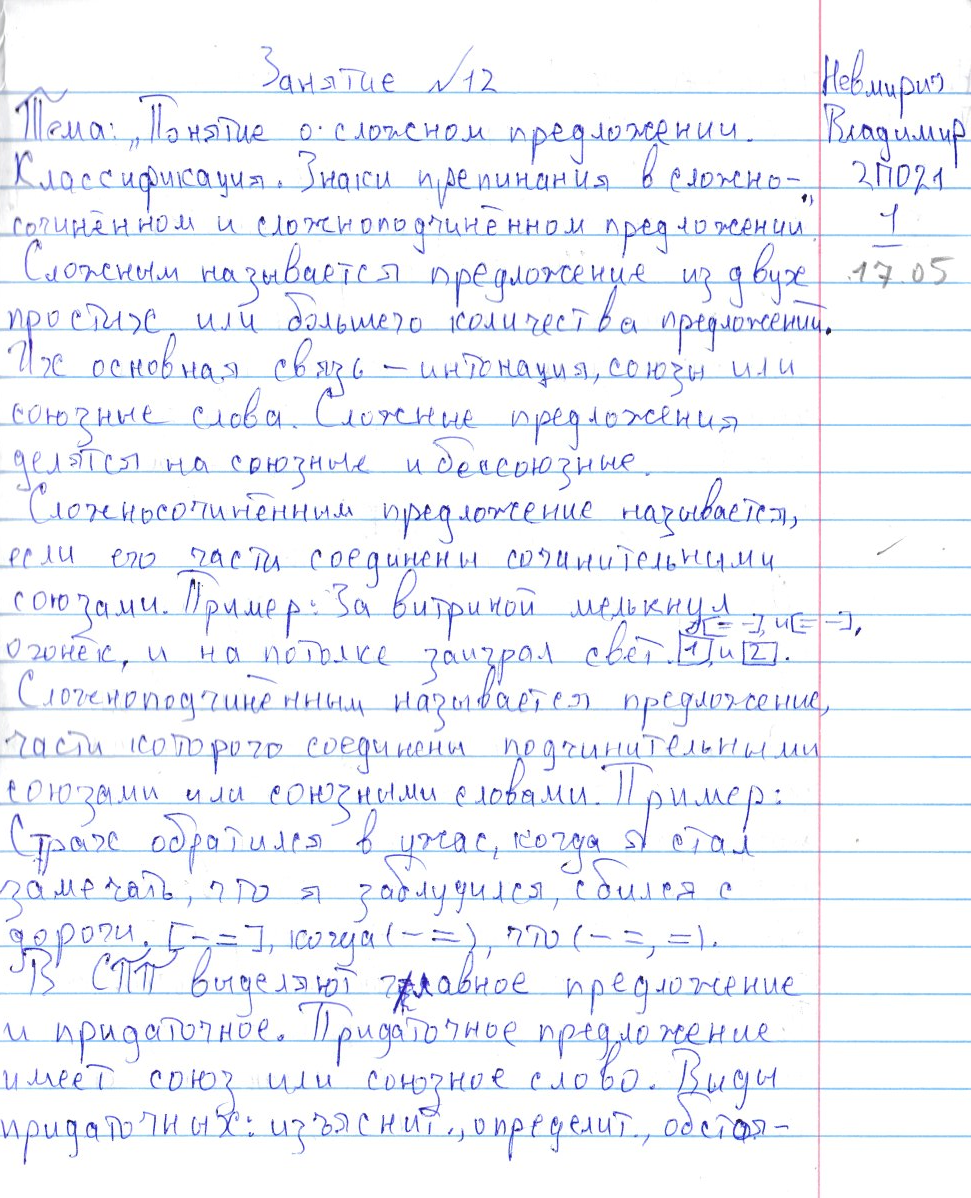 Занятие №12
Невмирич
Тема: „Понятие о сложном предложении.
Владимир
Классификация. Знаки препинания в сложно-
2П021
сочинённом и сложноподчинённом предложении".
1
Сложным называется предложение из двух
17.05
простых или большего количества предложений.
Их основная связь – интонация, союзы или
союзные слова. Сложные предложения
делятся на союзные и бессоюзные.
Сложносочинённым предложение называется,
если его части соединены сочинительными
союзами. Пример: За витриной мелькнул
[= –], и [= –],
огонёк, и на потолке заиграл свет. [1], и [2].
Сложноподчинённым называется предложение,
части которого соединены подчинительными
союзами или союзными словами. Пример:
Страх обратился в ужас, когда я стал
замечать, что я заблудился, сбился с
дороги. [–, =], когда (– =), что (– =, =).
В СПП выделяют главное предложение
и придаточное. Придаточное предложение
имеет союз или союзное слово. Виды
придаточных: изъяснит., определит., обстоя-